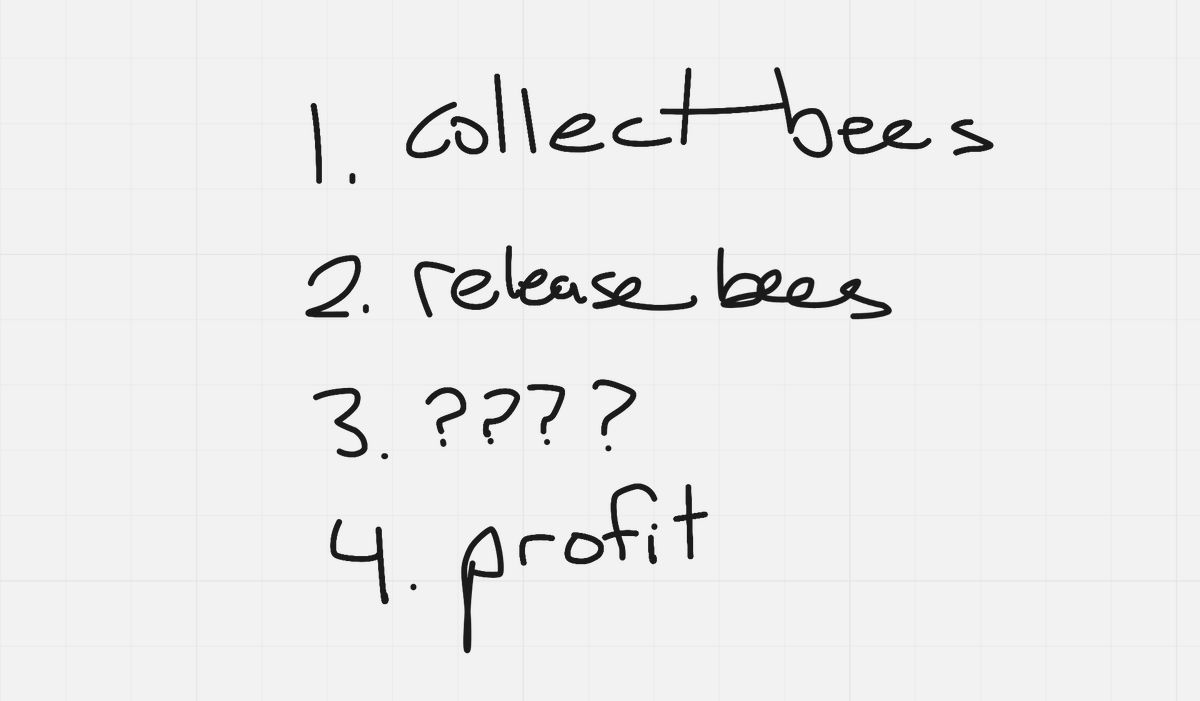 1. collect bees
2. release bees
3. ????
4. profit